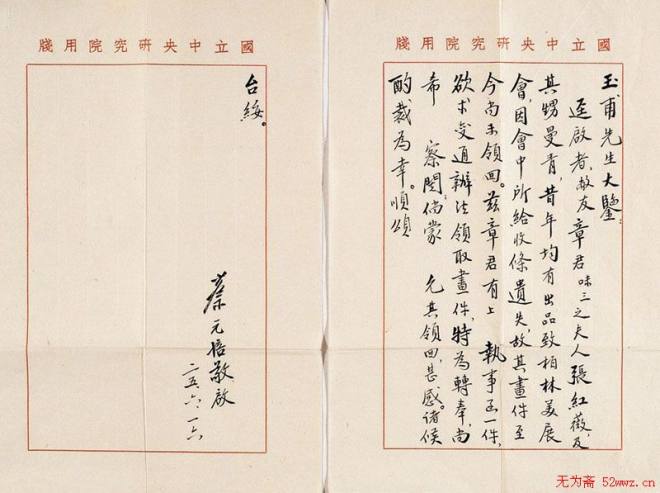 國立中央研究院用牋
玉甫先生大鑒：
逕啟者，故友章君味三之夫人張紅薇，及
其甥曼青，昔年均有出品致柏林美展
會，因會中所給收條遺失，故其畫件至
今尚未領回。茲章君有上 執事函一件，
欲求變通辦法領取畫件，特為轉奉，尚
希 察閱；倘蒙 允其領回，甚感。諸候
酌裁為幸。順頌
國立中央研究院用牋
台綏。
蔡元培敬啟
二五、六、一六
无为斋 52wwz.cn